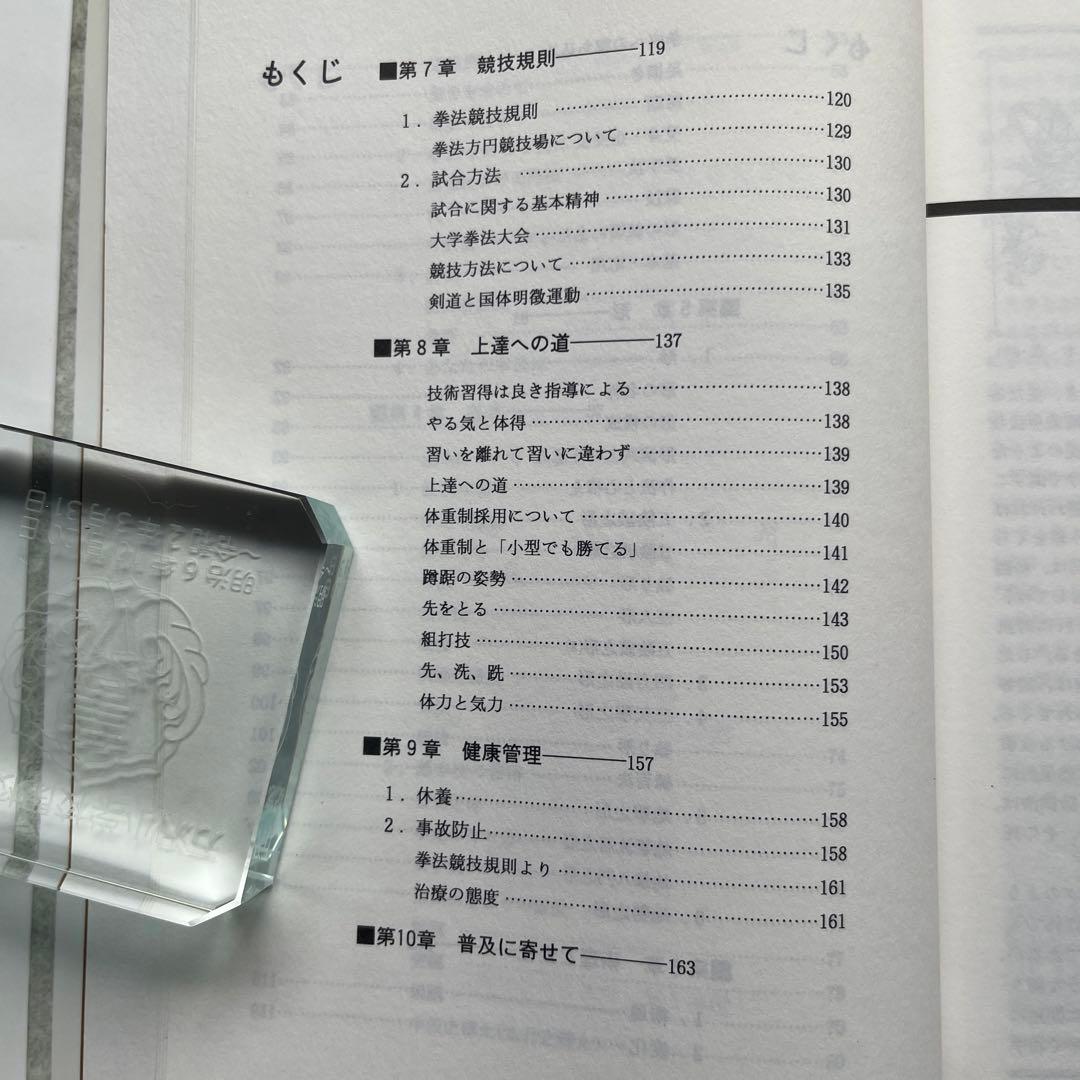 もくじ
■第7章 競技規則————119
1．拳法競技規則 ……………………………120
拳法方円競技場について……………………129
2．試合方法 ……………………………130
試合に関する基本精神……………………130
大学拳法大会……………………………131
競技方法について……………………133
剣道と国体明徴運動……………………135
■第8章 上達への道————137
技術習得は良き指導による……………………138
やる気と体得……………………………138
習いを離れて習いに違わず……………………139
上達への道……………………………139
体重制採用について……………………140
体重制と「小型でも勝てる」……………………141
蹲踞の姿勢……………………………142
先をとる……………………………143
組打技……………………………150
先、洗、跣……………………………153
体力と気力……………………………155
■第9章 健康管理————157
1．休養……………………………158
2．事故防止……………………………158
拳法競技規則より……………………161
治療の態度……………………………161
■第10章 普及に寄せて————163
明治6年